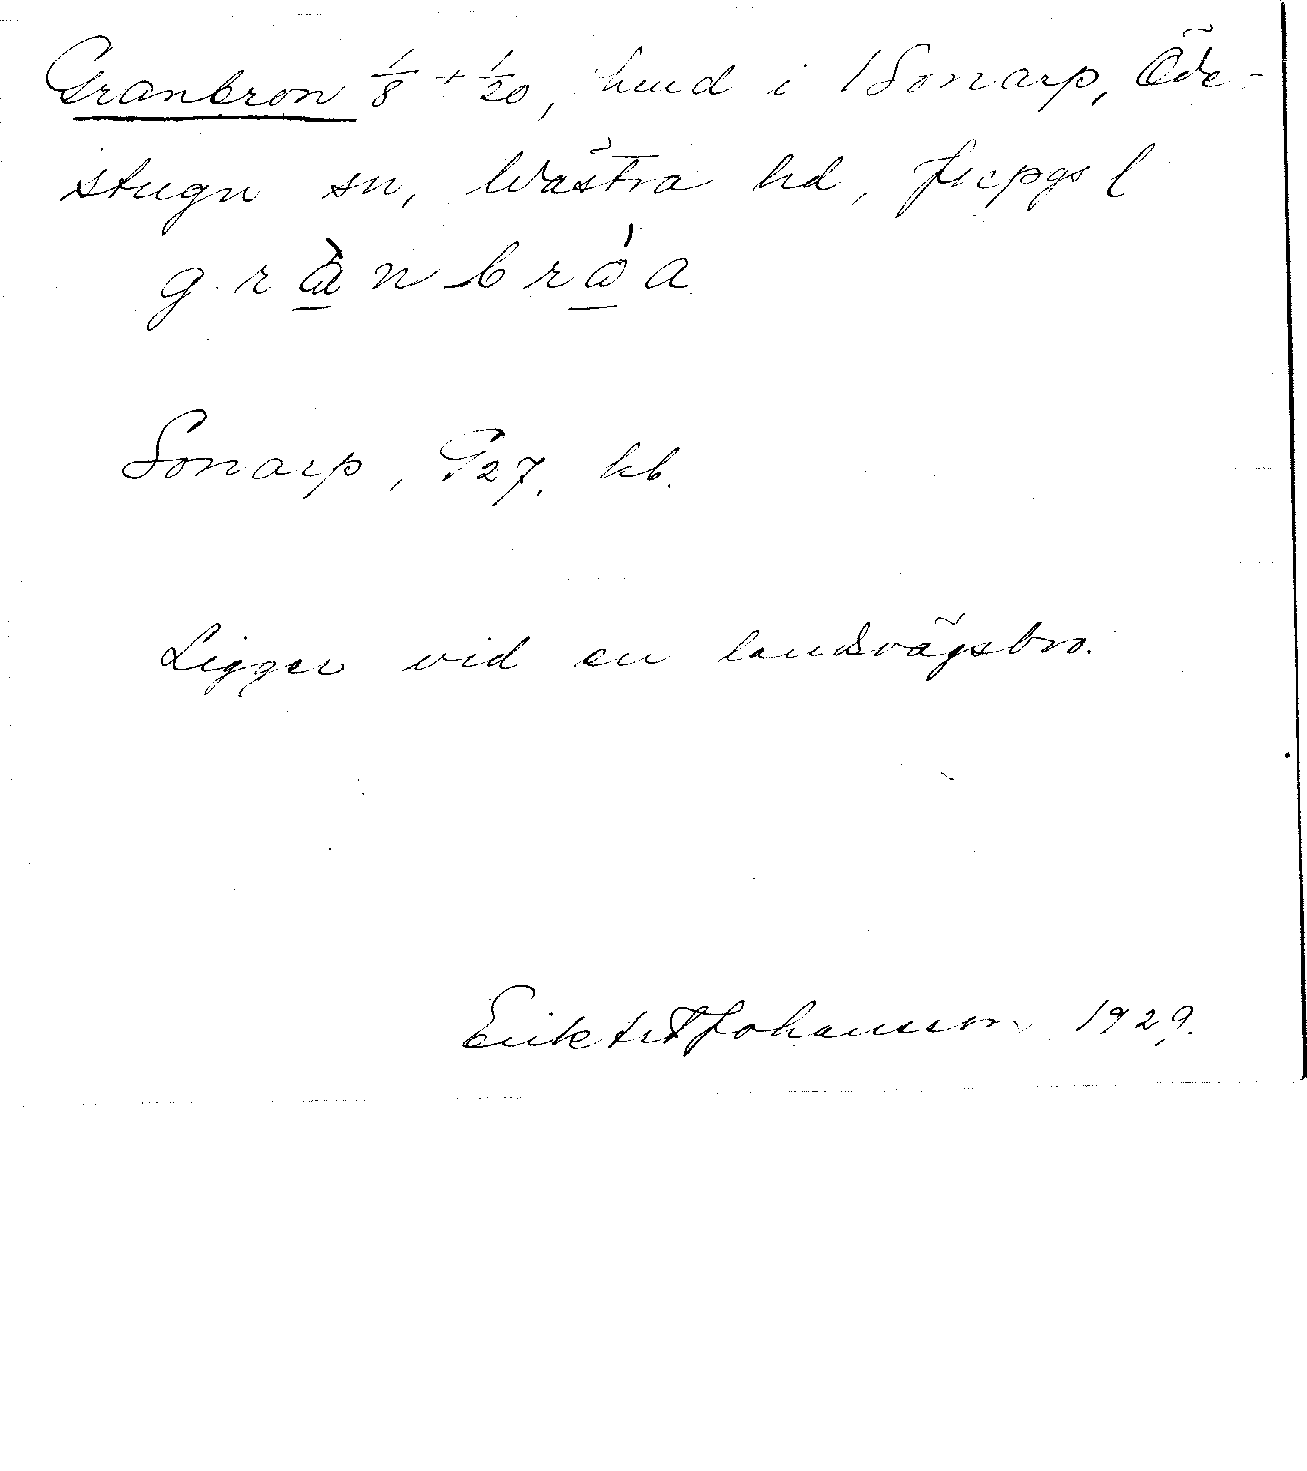 Granbron 1/8 + 1/20, hmd i 1 Sonarp, Öde-
stugu sn, Wästra hd, Jkpgs l
grànbróa
Sonarp, G 27. kb.
Ligger vid en landsvägsbro.
Johansson 1929.